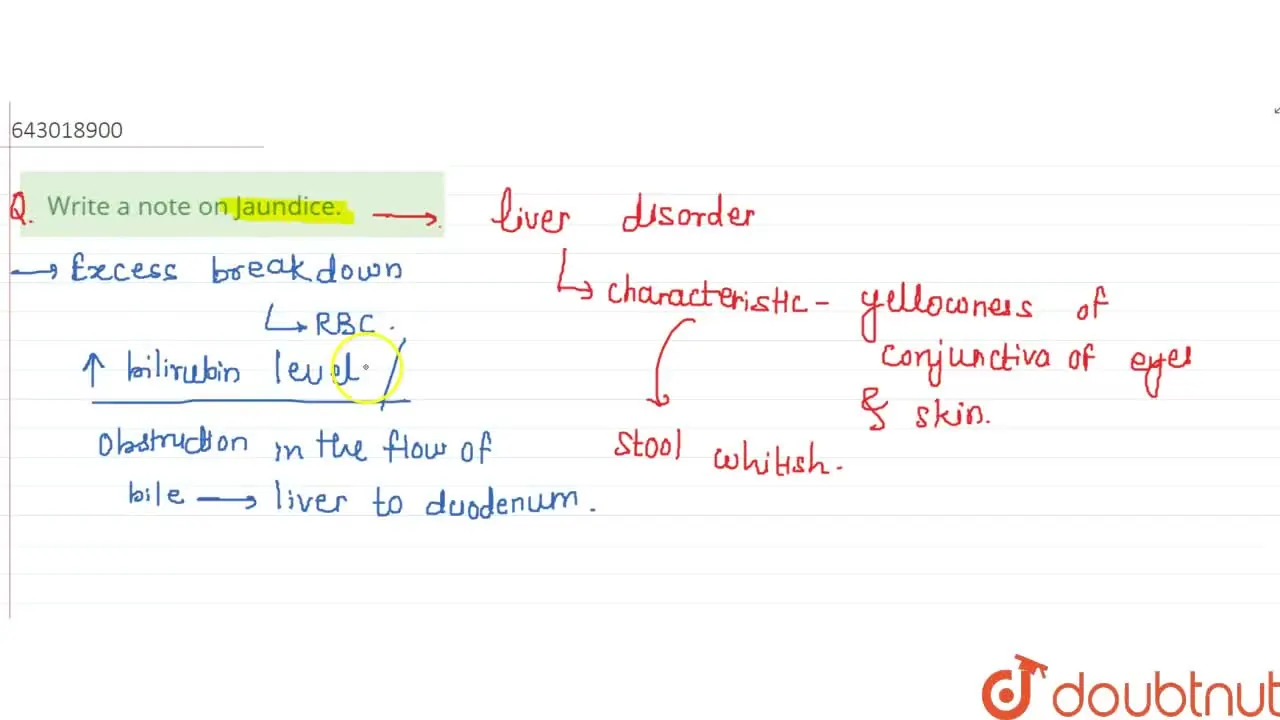 643018900
Q. Write a note on Jaundice. → liver disorder
↳ characteristic - yellowness of
conjunctiva of eyes
& skin.
stool whitish.
→ Excess breakdown
↳ RBC.
↑ bilirubin level /
Obstruction in the flow of
bile → liver to duodenum.
doubtnut